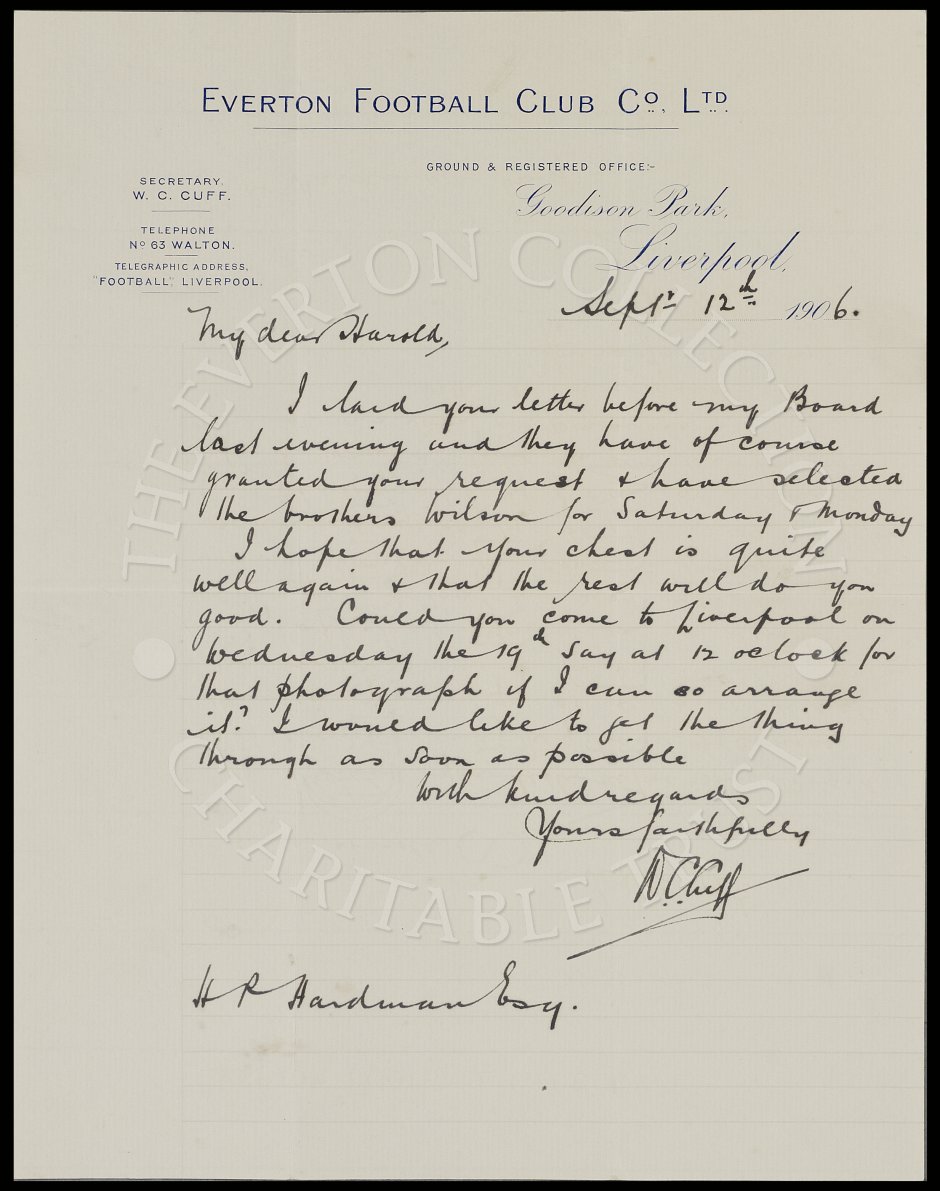 EVERTON FOOTBALL CLUB Co., LTD.
GROUND & REGISTERED OFFICE:-
Goodison Park,
Liverpool,
SECRETARY.
W. C. CUFF.
TELEPHONE
No 63 WALTON.
TELEGRAPHIC ADDRESS,
"FOOTBALL", LIVERPOOL.
Septr 12th 1906.
My dear Harold,
I laid your letter before my Board
last evening and they have of course
granted your request & have selected
the brothers Wilson for Saturday & Monday
I hope that your chest is quite
well again & that the rest will do you
good. Could you come to Liverpool on
Wednesday the 19th say at 12 oclock for
that photograph if I can so arrange
it? I would like to get the thing
through as soon as possible
With kind regards
Yours faithfully
W.C.Cuff
H P Hardman Esq.
THE EVERTON COLLECTION
CHARITABLE TRUST